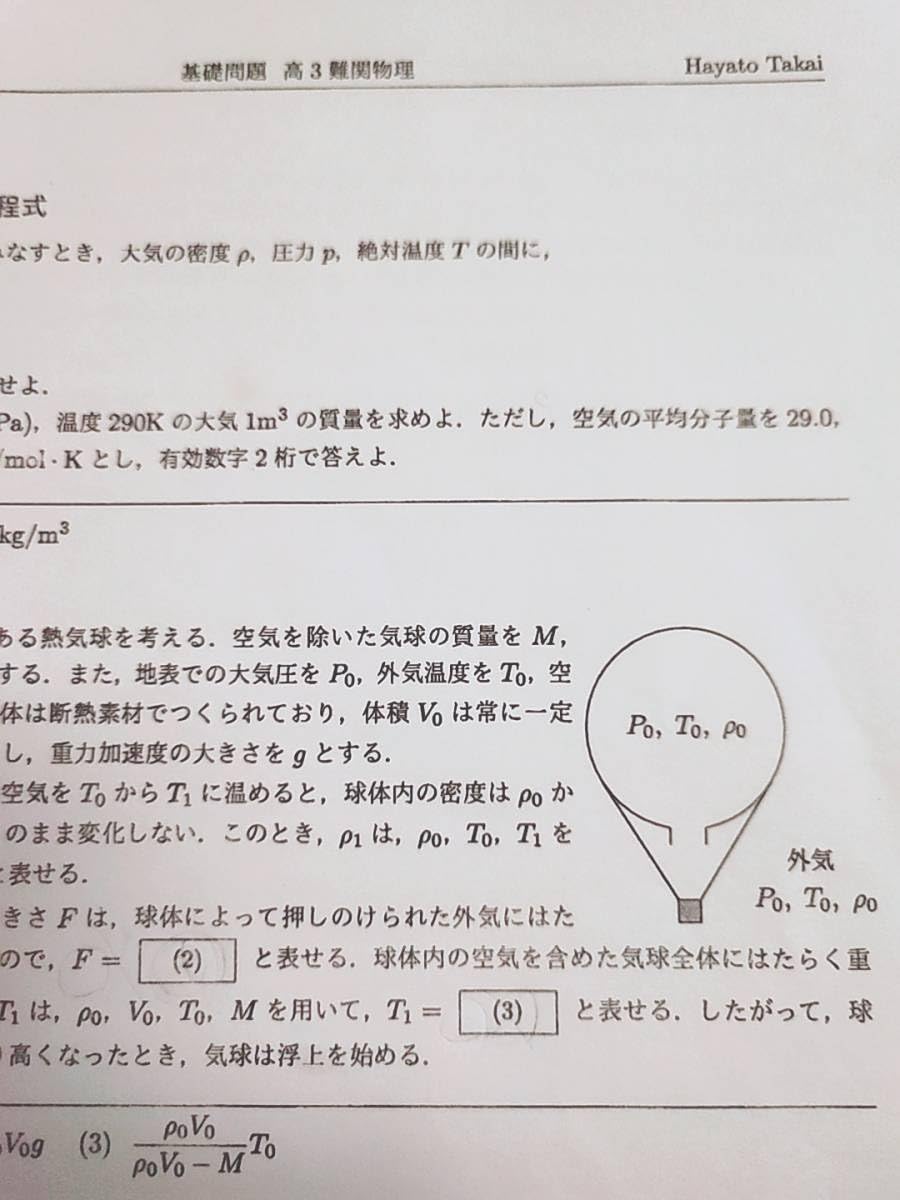 基礎問題 高3難関物理 Hayato Takai
程式
なすとき，大気の密度 ρ，圧力 p，絶対温度 T の間に，
せよ．
Pa)，温度 290K の大気 1m³ の質量を求めよ．ただし，空気の平均分子量を 29.0，
/mol · K とし，有効数字 2 桁で答えよ．
kg/m³
ある熱気球を考える．空気を除いた気球の質量を M，
する．また，地表での大気圧を P₀，外気温度を T₀，空
体は断熱素材でつくられており，体積 V₀ は常に一定
し，重力加速度の大きさを g とする．
空気を T₀ から T₁ に温めると，球体内の密度は ρ₀ か
のまま変化しない．このとき，ρ₁ は，ρ₀，T₀，T₁ を
と表せる．
きさ F は，球体によって押しのけられた外気にはた
ので，F = (2) と表せる．球体内の空気を含めた気球全体にはたらく重
T₁ は，ρ₀，V₀，T₀，M を用いて，T₁ = (3) と表せる．したがって，球
り高くなったとき，気球は浮上を始める．
P₀, T₀, ρ₀
外気
P₀, T₀, ρ₀
V₀g (3) ρ₀V₀/(ρ₀V₀ − M) T₀